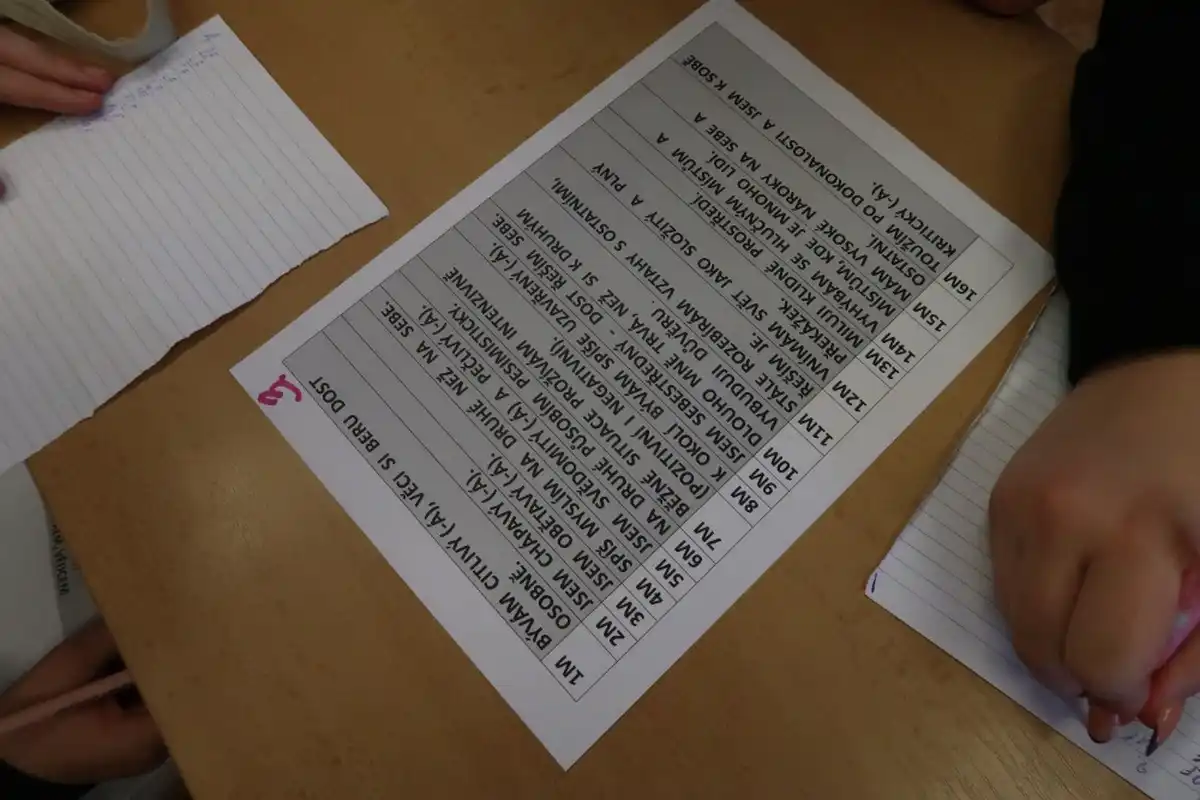 1M BÝVÁM CITLIVÝ (-Á), VĚCI SI BERU DOST
OSOBNĚ.
2M JSEM CHÁPAVÝ (-Á).
3M JSEM OBĚTAVÝ (-Á).
4M SPÍŠ MYSLÍM NA DRUHÉ NEŽ NA SEBE.
5M JSEM SVĚDOMITÝ (-Á) A PEČLIVÝ (-Á).
6M NA DRUHÉ PŮSOBÍM PESIMISTICKY.
7M BĚŽNÉ SITUACE PROŽÍVÁM INTENZIVNĚ
(POZITIVNÍ I NEGATIVNÍ).
8M K OKOLÍ BÝVÁM SPÍŠE UZAVŘENÝ (-Á).
9M JSEM SEBESTŘEDNÝ - DOST ŘEŠÍM SEBE.
10M DLOUHO MNĚ TRVÁ, NEŽ SI K DRUHÝM
VYBUDUJI DŮVĚRU.
11M STÁLE ROZEBÍRÁM VZTAHY S OSTATNÍMI,
ŘEŠÍM JE.
12M VNÍMÁM SVĚT JAKO SLOŽITÝ A PLNÝ
PŘEKÁŽEK.
13M MILUJI KLIDNÉ PROSTŘEDÍ.
14M VYHÝBÁM SE HLUČNÝM MÍSTŮM A
MÍSTŮM, KDE JE MNOHO LIDÍ.
15M MÁM VYSOKÉ NÁROKY NA SEBE A
OSTATNÍ.
16M TOUŽÍM PO DOKONALOSTI A JSEM K SOBĚ
KRITICKÝ (-Á).